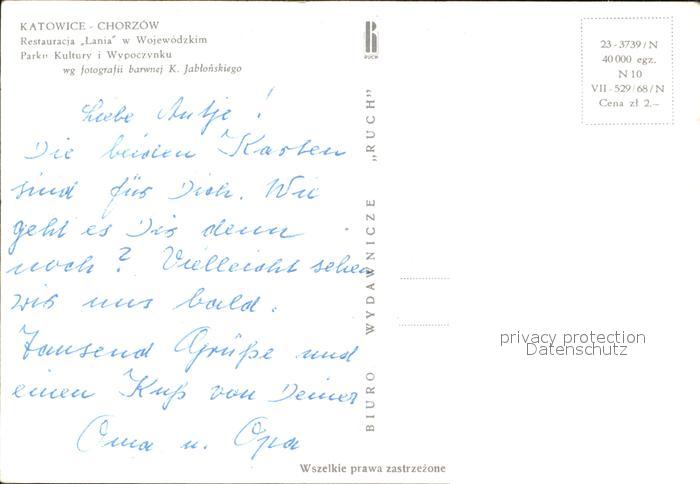 KATOWICE - CHORZÓW
Restauracja „Łania" w Wojewódzkim
Parku Kultury i Wypoczynku
wg fotografii barwnej K. Jabłońskiego
Liebe Antje!
Die beiden Karten
sind für Dich. Wie
geht es Dir denn
noch? Vielleicht sehen
wir uns bald.
Tausend Grüße und
einen Kuß von Deiner
Oma u. Opa
RUCH
BIURO WYDAWNICZE „RUCH"
23-3739/N
40 000 egz.
N 10
VII-529/68/N
Cena zł 2,–
privacy protection
Datenschutz
Wszelkie prawa zastrzeżone